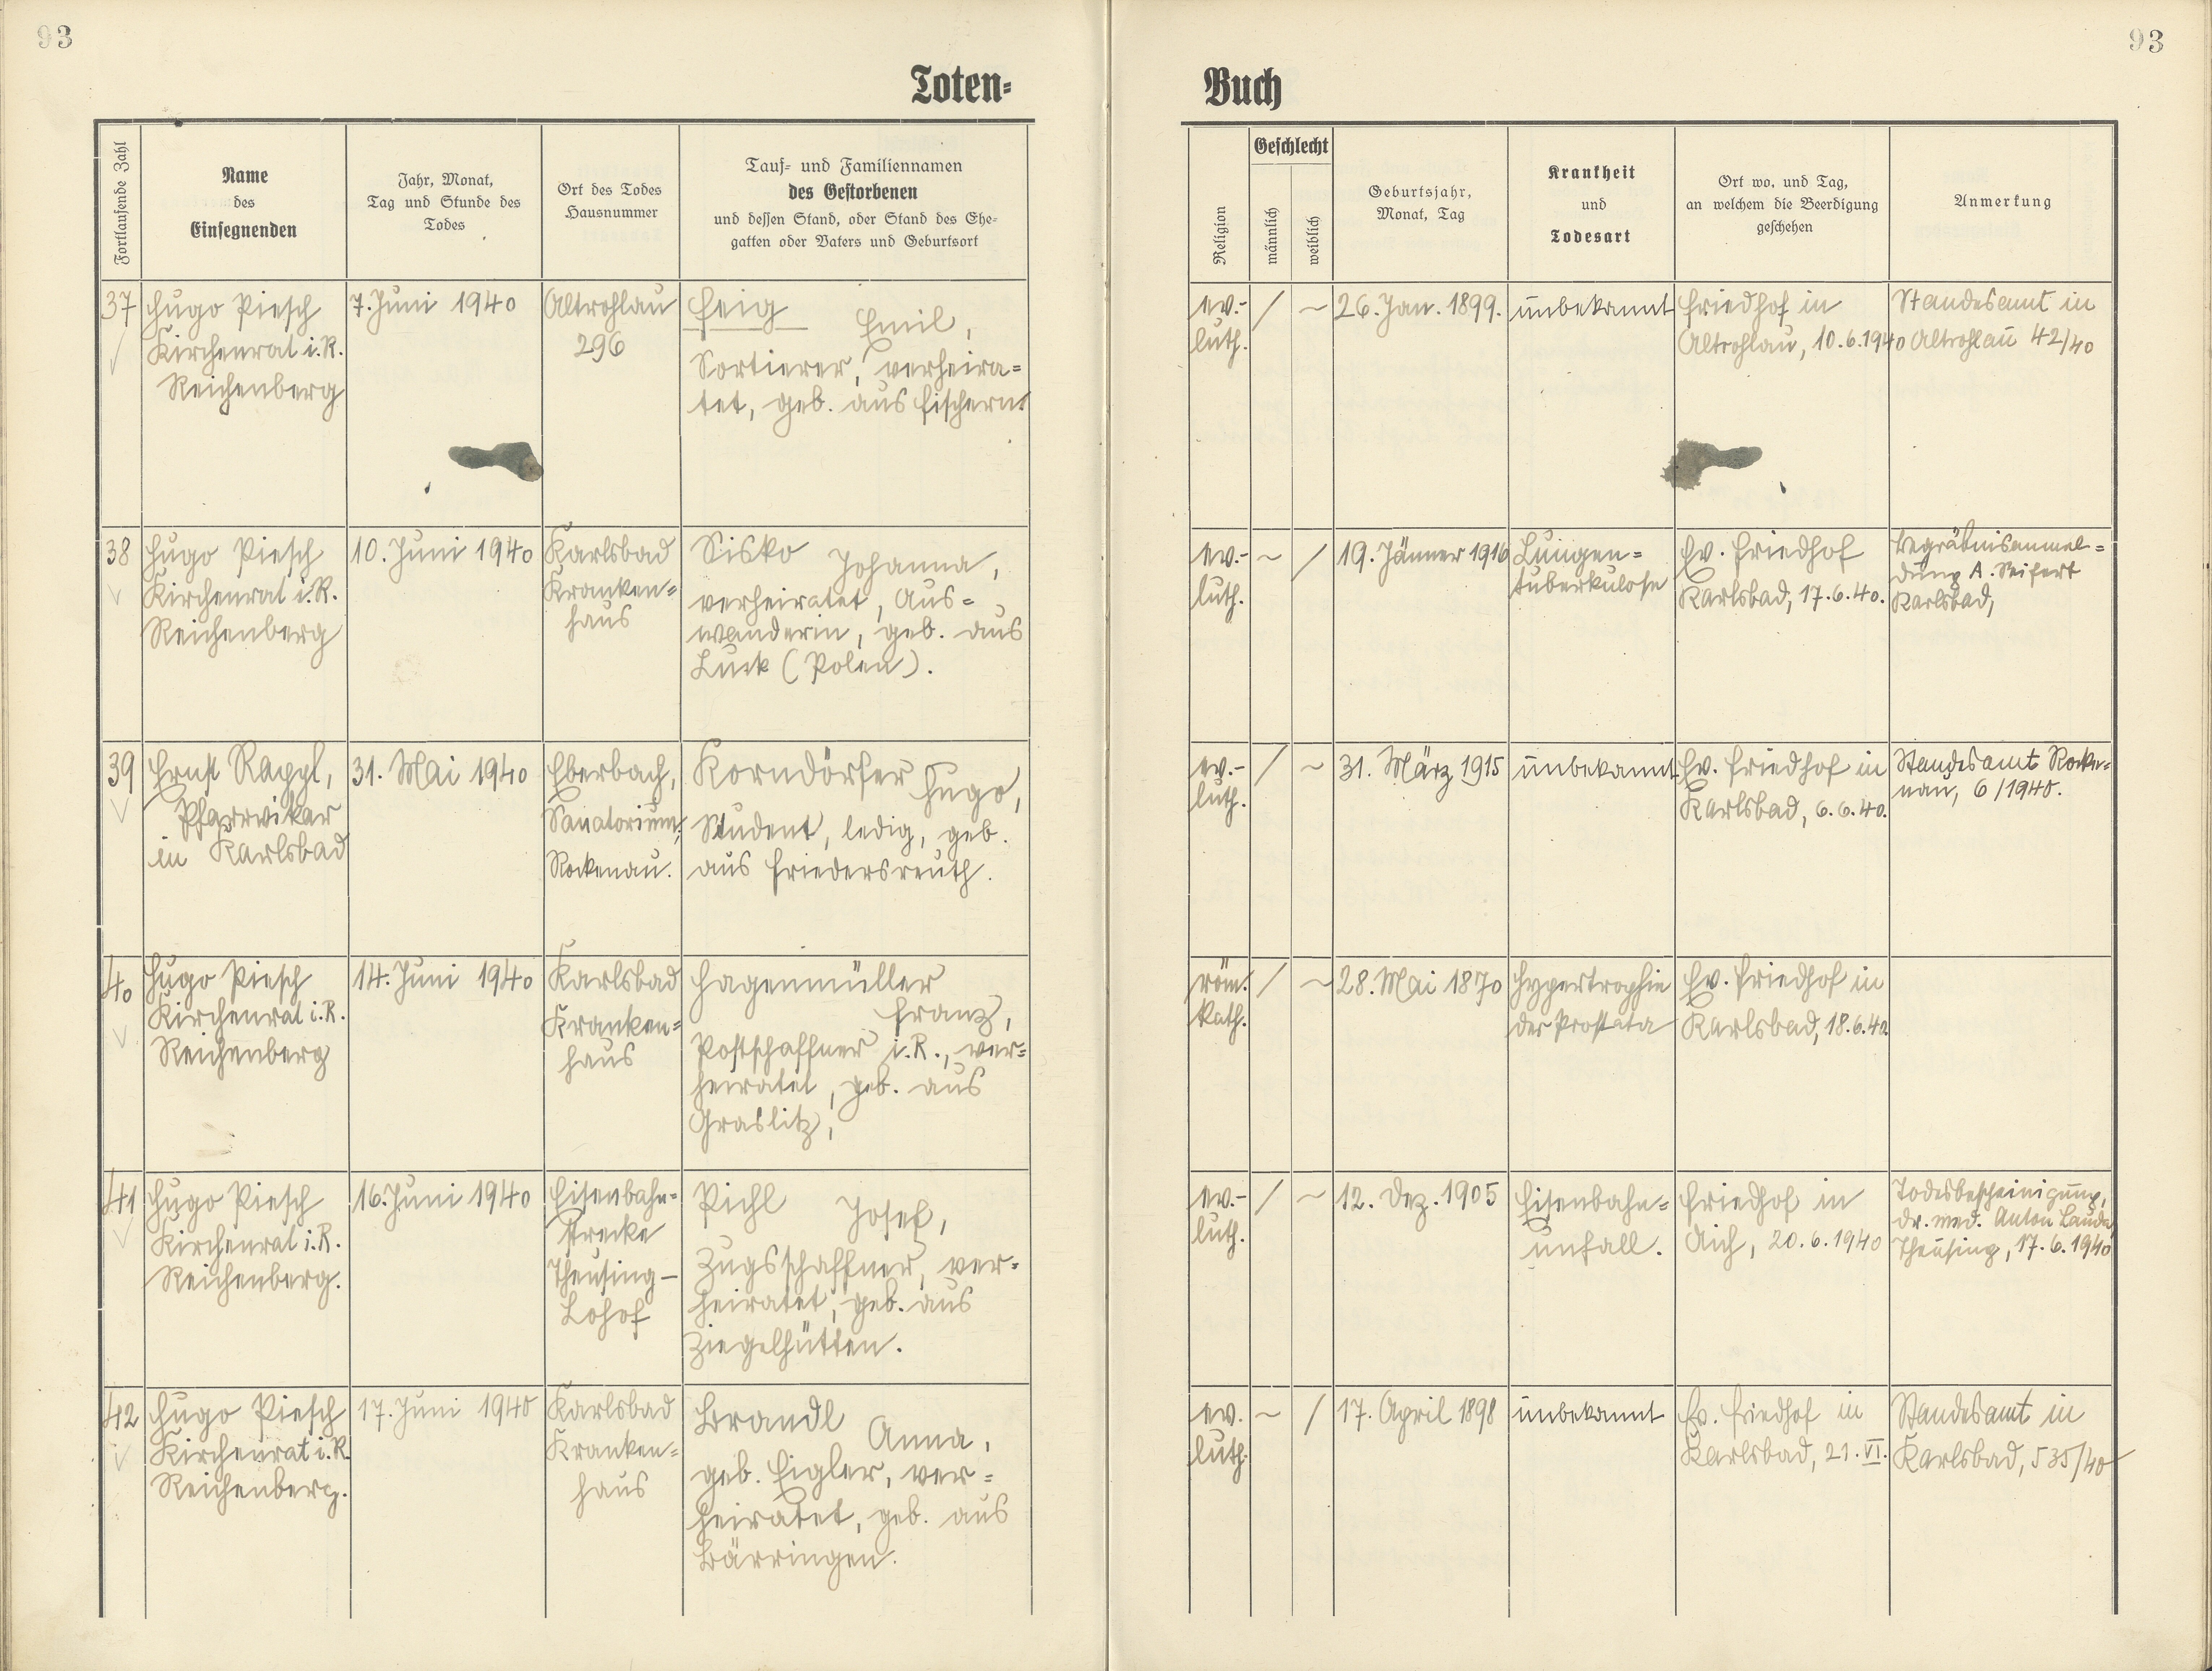 93
93
Toten-
Buch
Fortlaufende Zahl
Name
des
Einsegnenden
Jahr, Monat,
Tag und Stunde des
Todes
Ort des Todes
Hausnummer
Tauf- und Familiennamen
des Gestorbenen
und dessen Stand, oder Stand des Ehe-
gatten oder Vaters und Geburtsort
Religion
Geschlecht
männlich
weiblich
Geburtsjahr,
Monat, Tag
Krankheit
und
Todesart
Ort wo, und Tag,
an welchem die Beerdigung
geschehen
Anmerkung
37
Hugo Piesch
Kirchenrat i.R.
Reichenberg
7. Juni 1940
Altrohlau
296
Feig Emil,
Sortierer, verheira-
tet, geb. aus Fischern
ev.-
luth.
/
~
26. Jan. 1899.
unbekannt
Friedhof in
Altrohlau, 10.6.1940
Standesamt in
Altrohlau 42/40
38
Hugo Piesch
Kirchenrat i.R.
Reichenberg
10. Juni 1940
Karlsbad
Kranken-
haus
Sisko Johanna,
verheiratet, Aus-
wanderin, geb. aus
Luck (Polen).
ev.-
luth.
~
/
19. Jänner 1916
Lungen-
tuberkulose
Ev. Friedhof
Karlsbad, 17.6.40.
Begräbnisanmel-
dung A. Seifert
Karlsbad,
39
Ernst Rappl,
Pfarrvikar
in Karlsbad
31. Mai 1940
Eberbach,
Sanatorium,
Rockenau.
Korndörfer Hugo,
Student, ledig, geb.
aus Friedersreuth.
ev.-
luth.
/
~
31. März 1915
unbekannt
Ev. Friedhof in
Karlsbad, 6.6.40.
Standesamt Rocke-
nau, 6/1940.
40
Hugo Piesch
Kirchenrat i.R.
Reichenberg
14. Juni 1940
Karlsbad
Kranken-
haus
Hagenmüller
Franz,
Postschaffner i.R., ver-
heiratet, geb. aus
Graslitz,
röm.
kath.
/
~
28. Mai 1870
Hypertrophie
der Prostata
Ev. Friedhof in
Karlsbad, 18.6.40.
41
Hugo Piesch
Kirchenrat i.R.
Reichenberg.
16. Juni 1940
Eisenbahn-
strecke
Theusing–
Lohof
Pichl Josef,
Zugsschaffner, ver-
heiratet, geb. aus
Ziegelhütten.
ev.-
luth.
/
~
12. Dez. 1905
Eisenbahn-
unfall.
Friedhof in
Aich, 20.6.1940
Todesbescheinigung,
Dr. med. Anton
Theusing, 17.6.1940
42
Hugo Piesch
Kirchenrat i.R.
Reichenberg.
17. Juni 1940
Karlsbad
Kranken-
haus
Brandl Anna,
geb. Eigler, ver-
heiratet, geb. aus
Bärringen.
ev.
luth.
~
/
17. April 1898
unbekannt
Ev. Friedhof in
Karlsbad, 21. VI.
Standesamt in
Karlsbad, 535/40